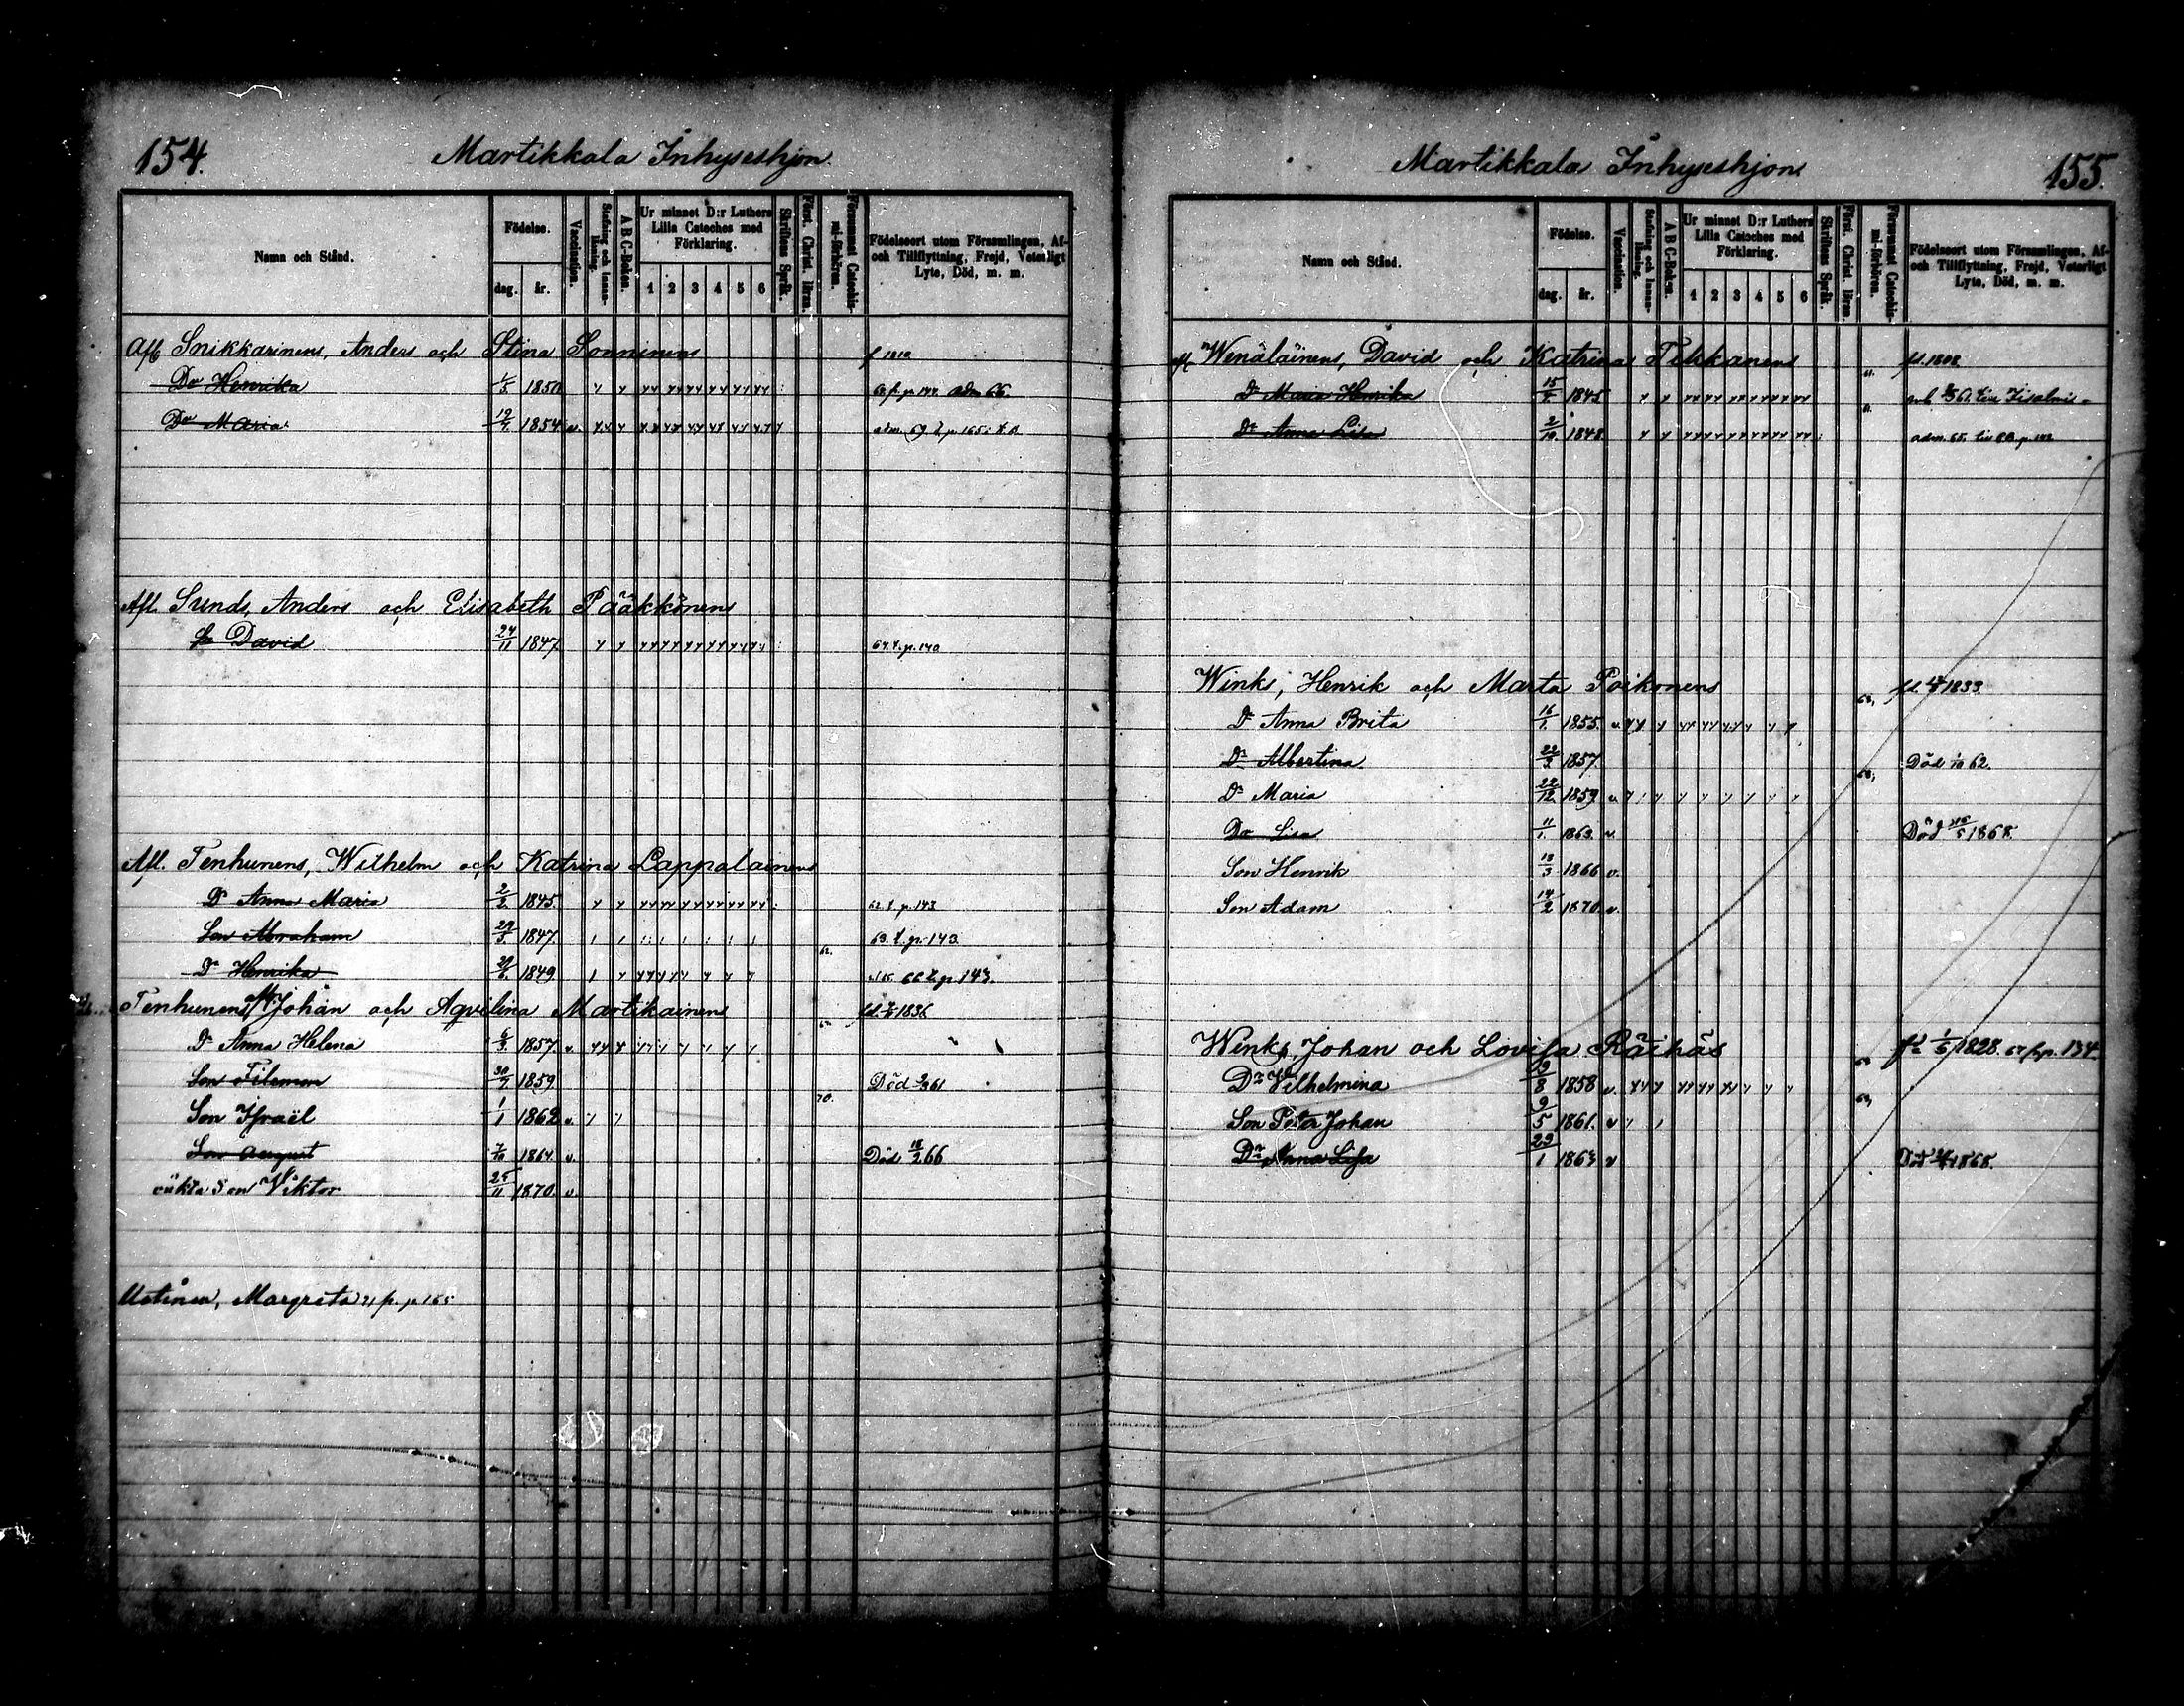 154. Martikkala Inhyseshjon
Namn och Stånd. Födelse. dag. år. Vaccination. Stafning och Innanläsning. A B C-Boken. Ur minnet D:r Luthers Lilla Cateches med Förklaring. 1 2 3 4 5 6 Skriftens Språk. Först. Christ. läran. Försummat Catechismi-förhören. Födelseort utom Församlingen, Af- och Tillflyttning, Frejd, Veterligt Lyte, Död, m. m.
Afl. Snikkarinens, Anders och Stina Sonninens
Dr Henrika 1/5 1850
Dr Maria 19/7 1854 v.
Afl. Sunds, Anders och Elisabeth Pääkkönens
Sn David 24/11 1847 64. t. p. 140
Afl. Tenhunens, Wilhelm och Katrina Lappalainens
Dr Anna Maria 2/2 1845 62. t. p. 143
Son Abraham 29/5 1847 63. t. p. 143
Dr Henrika 29/6 1849 62. 66 t. p. 143.
Tenhunens, Joh​an och Aqvilina Martikainens fd. 1836
Dr Anna Helena 6/3 1857 v.
Son Filemon 30/7 1859 Död 61
Son Israël 1/1 1862 v. 70.
Son August 7/10 1864 v. Död 18/2 66
oäkta Son Viktor 25/11 1870 v.
Margreta p. 165
Martikkala Inhyseshjon 155.
Namn och Stånd. Födelse. dag. år. Vaccination. Stafning och Innanläsning. A B C-Boken. Ur minnet D:r Luthers Lilla Cateches med Förklaring. 1 2 3 4 5 6 Skriftens Språk. Först. Christ. läran. Försummat Catechismi-förhören. Födelseort utom Församlingen, Af- och Tillflyttning, Frejd, Veterligt Lyte, Död, m. m.
afl. Wenäläinens, David och Katrina Tikkanens fd. 1808
Dr Maria Henrika 15/4 1845 61.
Dr Anna Lisa 2/10 1848 adm. 65.
Winks, Henrik och Marta Poikonens fd. 1833
Dr Anna Brita 16/1 1855 v. 69,
Dr Albertina 22/3 1857 Död 62.
Dr Maria 22/12 1859 v.
Dr Lisa 11/1 1863. v. Död 1868
Son Henrik 13/3 1866 v.
Son Adam 14/2 1870 v.
Winks, Johan och Lovisa Räihäs 1828. p. 134
Dr Vilhelmina 9/8 1858 v.
Son Petter Johan 9/5 1861. v
Dr Anna Lisa 29/1 1863 v Död 1868.